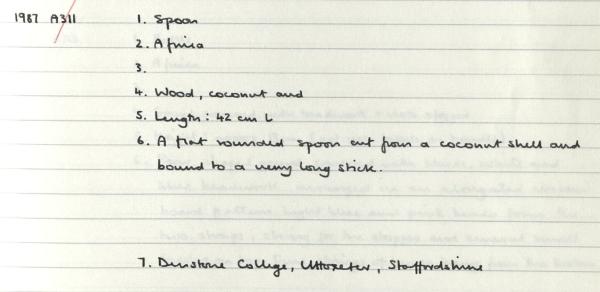 1987 A311 1. Spoon
2. Africa
3.
4. Wood, coconut and
5. Length: 42 cm L
6. A flat rounded spoon cut from a coconut shell and
bound to a very long stick.
7. Denstone College, Uttoxeter, Staffordshire